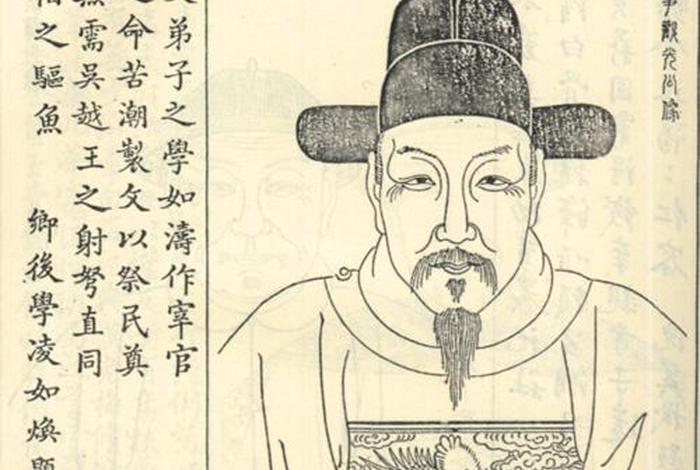 事觀光公像
弟子之學如濤作宰官
命苦潮製文以祭民奠
無需吳越王之射弩直同
之驅魚
鄉後學凌如煥題